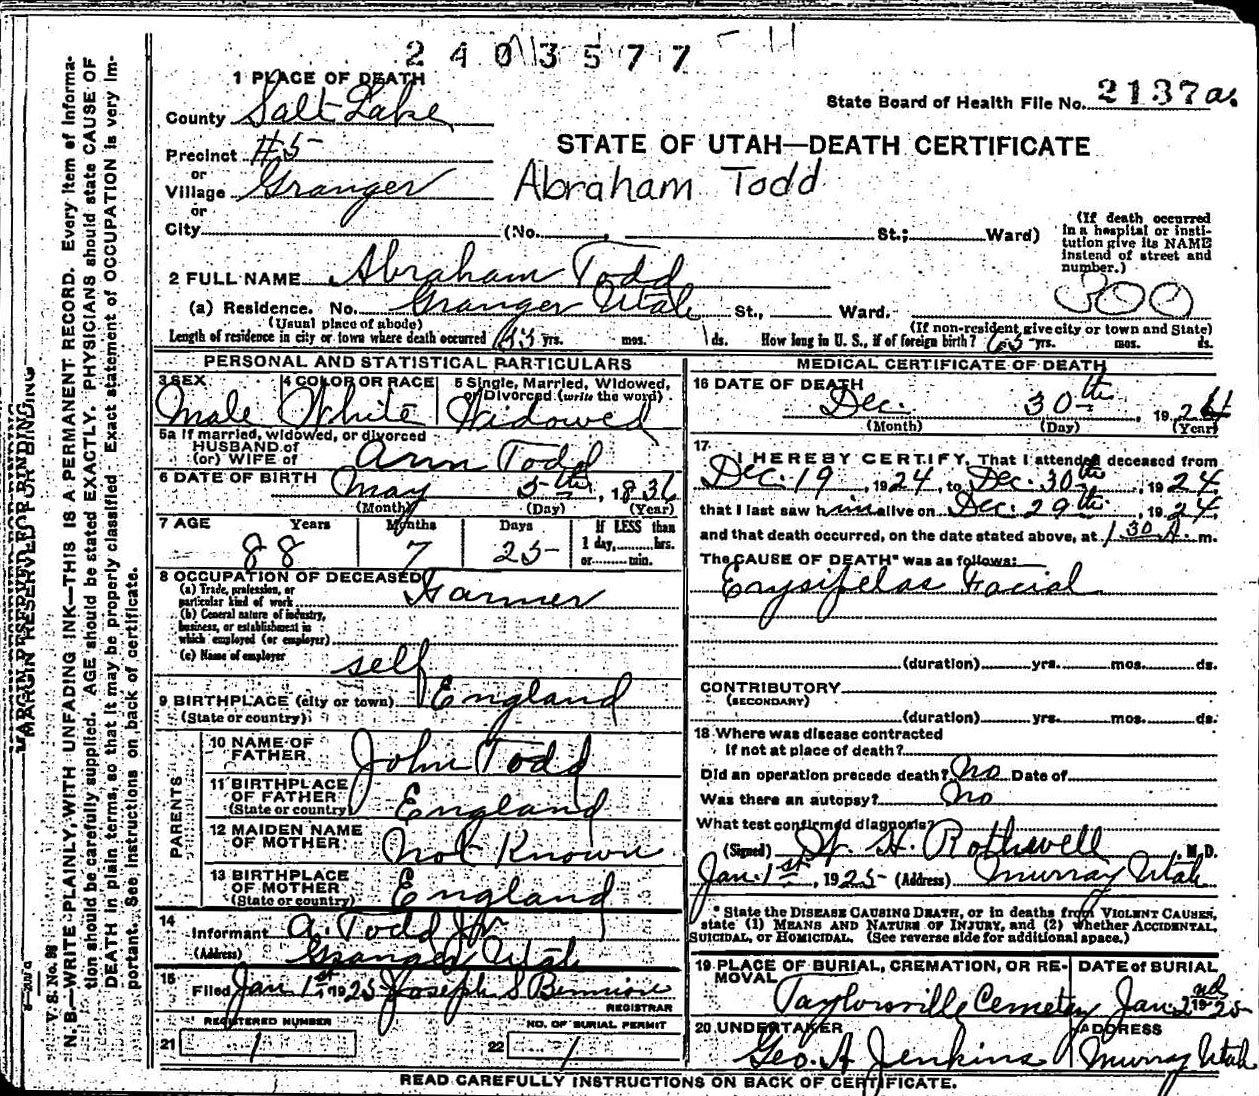 2403577
1 PLACE OF DEATH
State Board of Health File No. 2137a.
County Salt Lake
STATE OF UTAH—DEATH CERTIFICATE
Precinct #5
or
Village Granger
Abraham Todd
or
City (No. , St.; Ward)
(If death occurred in a hospital or institution give its NAME instead of street and number.)
2 FULL NAME Abraham Todd
300
(a) Residence. No. Granger Utah St., Ward.
(Usual place of abode) (If non-resident give city or town and State)
Length of residence in city or town where death occurred yrs. mos. ds. How long in U. S., if of foreign birth? yrs. mos. ds.
PERSONAL AND STATISTICAL PARTICULARS
3 SEX 4 COLOR OR RACE 5 Single, Married, Widowed, or Divorced (write the word)
Male White Widowed
5a If married, widowed, or divorced
HUSBAND of
(or) WIFE of Ann Todd
6 DATE OF BIRTH May 5th, 1836
(Month) (Day) (Year)
7 AGE Years Months Days If LESS than
1 day, hrs.
or min.
88 7 25
8 OCCUPATION OF DECEASED
(a) Trade, profession, or
particular kind of work Farmer
(b) General nature of industry,
business, or establishment in
which employed (or employer)
(c) Name of employer self
9 BIRTHPLACE (city or town) England
(State or country)
PARENTS
10 NAME OF
FATHER John Todd
11 BIRTHPLACE
OF FATHER England
(State or country)
12 MAIDEN NAME
OF MOTHER Not Known
13 BIRTHPLACE
OF MOTHER England
(State or country)
14
Informant A. Todd Jr
(Address) Granger Utah
15
Filed Jan 1st 1925 Joseph S Bennion
REGISTRAR
REGISTERED NUMBER NO. OF BURIAL PERMIT
21 1 22 1
MEDICAL CERTIFICATE OF DEATH
16 DATE OF DEATH
Dec. 30th, 1924
(Month) (Day) (Year)
17
I HEREBY CERTIFY, That I attended deceased from
Dec. 19, 1924, to Dec. 30th, 1924
that I last saw him alive on Dec. 29th, 1924
and that death occurred, on the date stated above, at 1 30 A. m.
The CAUSE OF DEATH* was as follows:
Erysipelas Facial
(duration) yrs. mos. ds.
CONTRIBUTORY
(SECONDARY)
(duration) yrs. mos. ds.
18 Where was disease contracted
if not at place of death?
Did an operation precede death? No Date of
Was there an autopsy? No
What test confirmed diagnosis?
(Signed) H. H. Rothwell, M.D.
Jan. 1st, 1925 (Address) Murray Utah
* State the DISEASE CAUSING DEATH, or in deaths from VIOLENT CAUSES,
state (1) MEANS AND NATURE OF INJURY, and (2) whether ACCIDENTAL,
SUICIDAL, or HOMICIDAL. (See reverse side for additional space.)
19 PLACE OF BURIAL, CREMATION, OR REMOVAL DATE OF BURIAL
Taylorsville Cemetery Jan. 2nd 1925
20 UNDERTAKER ADDRESS
Geo. A Jenkins Murray Utah
READ CAREFULLY INSTRUCTIONS ON BACK OF CERTIFICATE.
MARGIN RESERVED FOR BINDING
V. S. No. 98
N. B.—WRITE PLAINLY, WITH UNFADING INK—THIS IS A PERMANENT RECORD. Every item of informa-
tion should be carefully supplied. AGE should be stated EXACTLY. PHYSICIANS should state CAUSE OF
DEATH in plain terms, so that it may be properly classified. Exact statement of OCCUPATION is very im-
portant. See instructions on back of certificate.